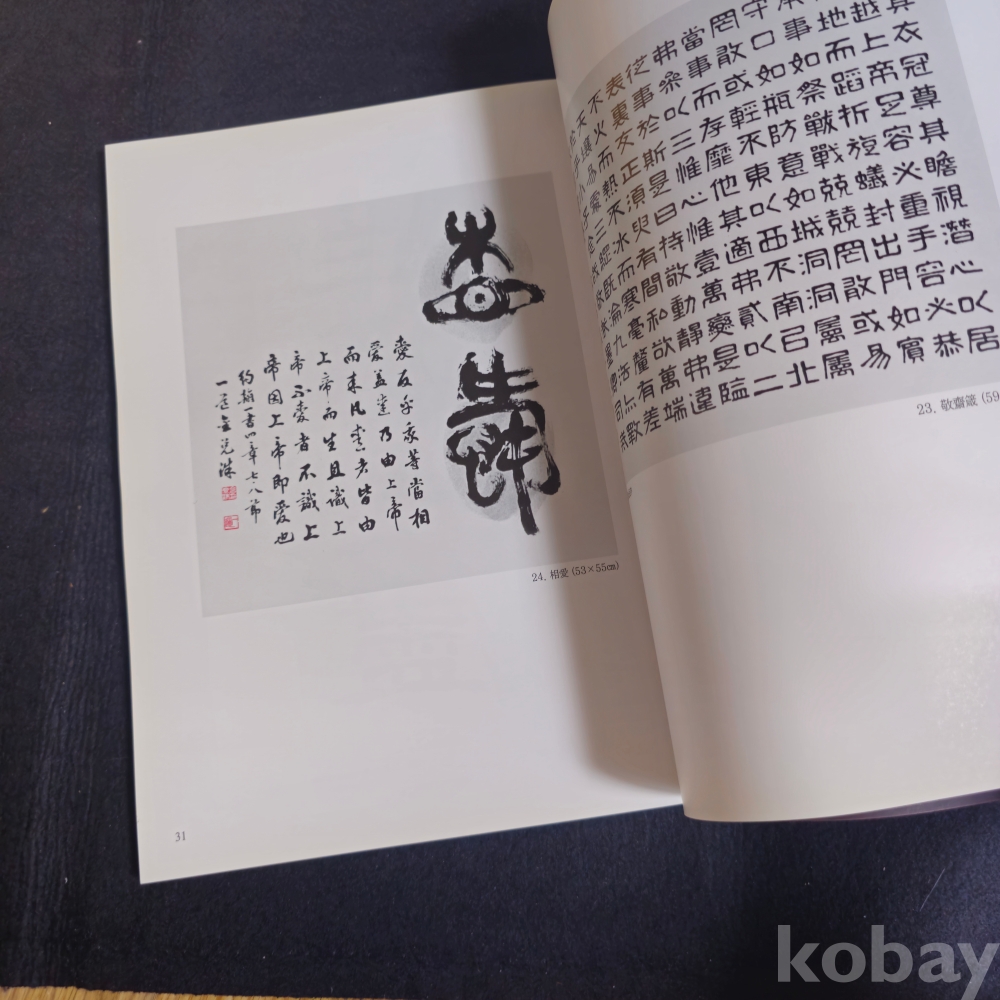 其衣冠尊其瞻視潛心以居
越上帝足容必重手容必恭
地而蹈折旋蟻封出門如賓
事如祭戰戰兢兢罔敢或易
守口如瓶防意如城洞洞屬屬
罔敢或輕不東以西不南以北
當事而存靡他其適弗貳以二
弗參以三惟心惟壹萬變是臨
從事於斯是曰持敬動靜弗違
表裏交正須臾有間私欲萬端
不火而熱不冰而寒毫釐有差
天壤易處三綱既淪九法亦斁
23. 敬齋箴 (59
相愛
愛友乎我等當相
愛盖愛乃由上帝
而來凡愛者皆由
上帝而生且識上
帝不愛者不識上
帝因上帝即愛也
約翰一書四章七·八節
24. 相愛 (53×55㎝)
31
kobay